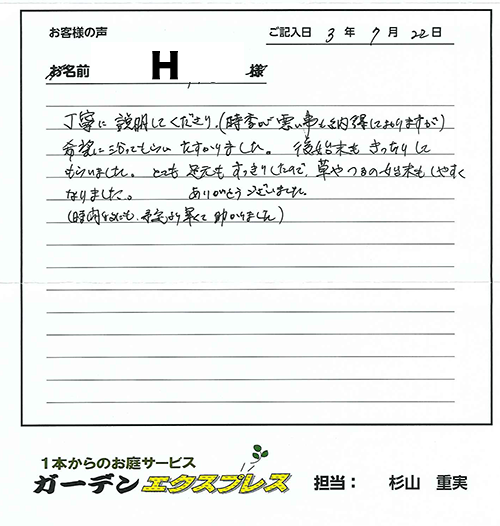 お客様の声
ご記入日 3 年 7 月 22 日
お名前 H 様
丁寧に説明してくださり、(時季が悪い事も納得しておりますが)
希望に沿ってもらい たすかりました。 後始末も きっちりして
もらいました。 とても 足元も すっきりしたので、草やつるの始末も しやすく
なりました。 ありがとうございました。
(時間的にも、予定より早くて 助かりました)
1本からのお庭サービス
ガーデンエクスプレス 担当： 杉山 重実